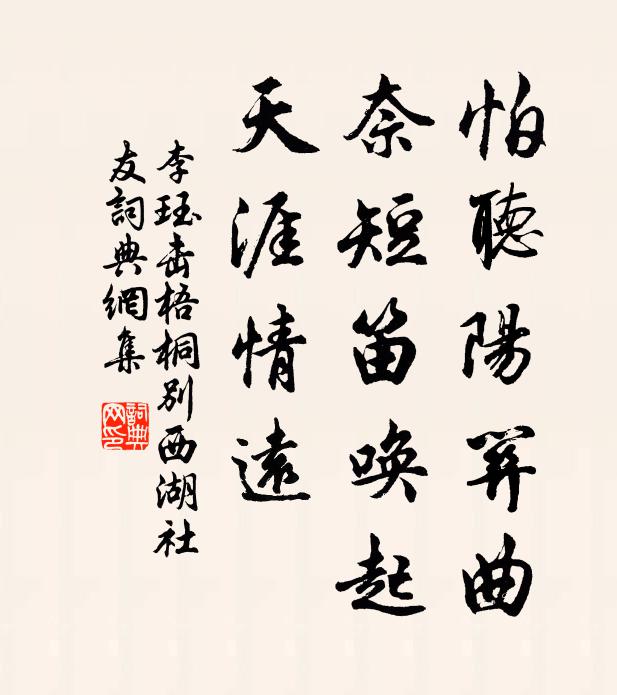 怕聽陽關曲
奈短笛喚起
天涯情遠
李珏击梧桐別西湖社
友詞典網集
詞典
网印